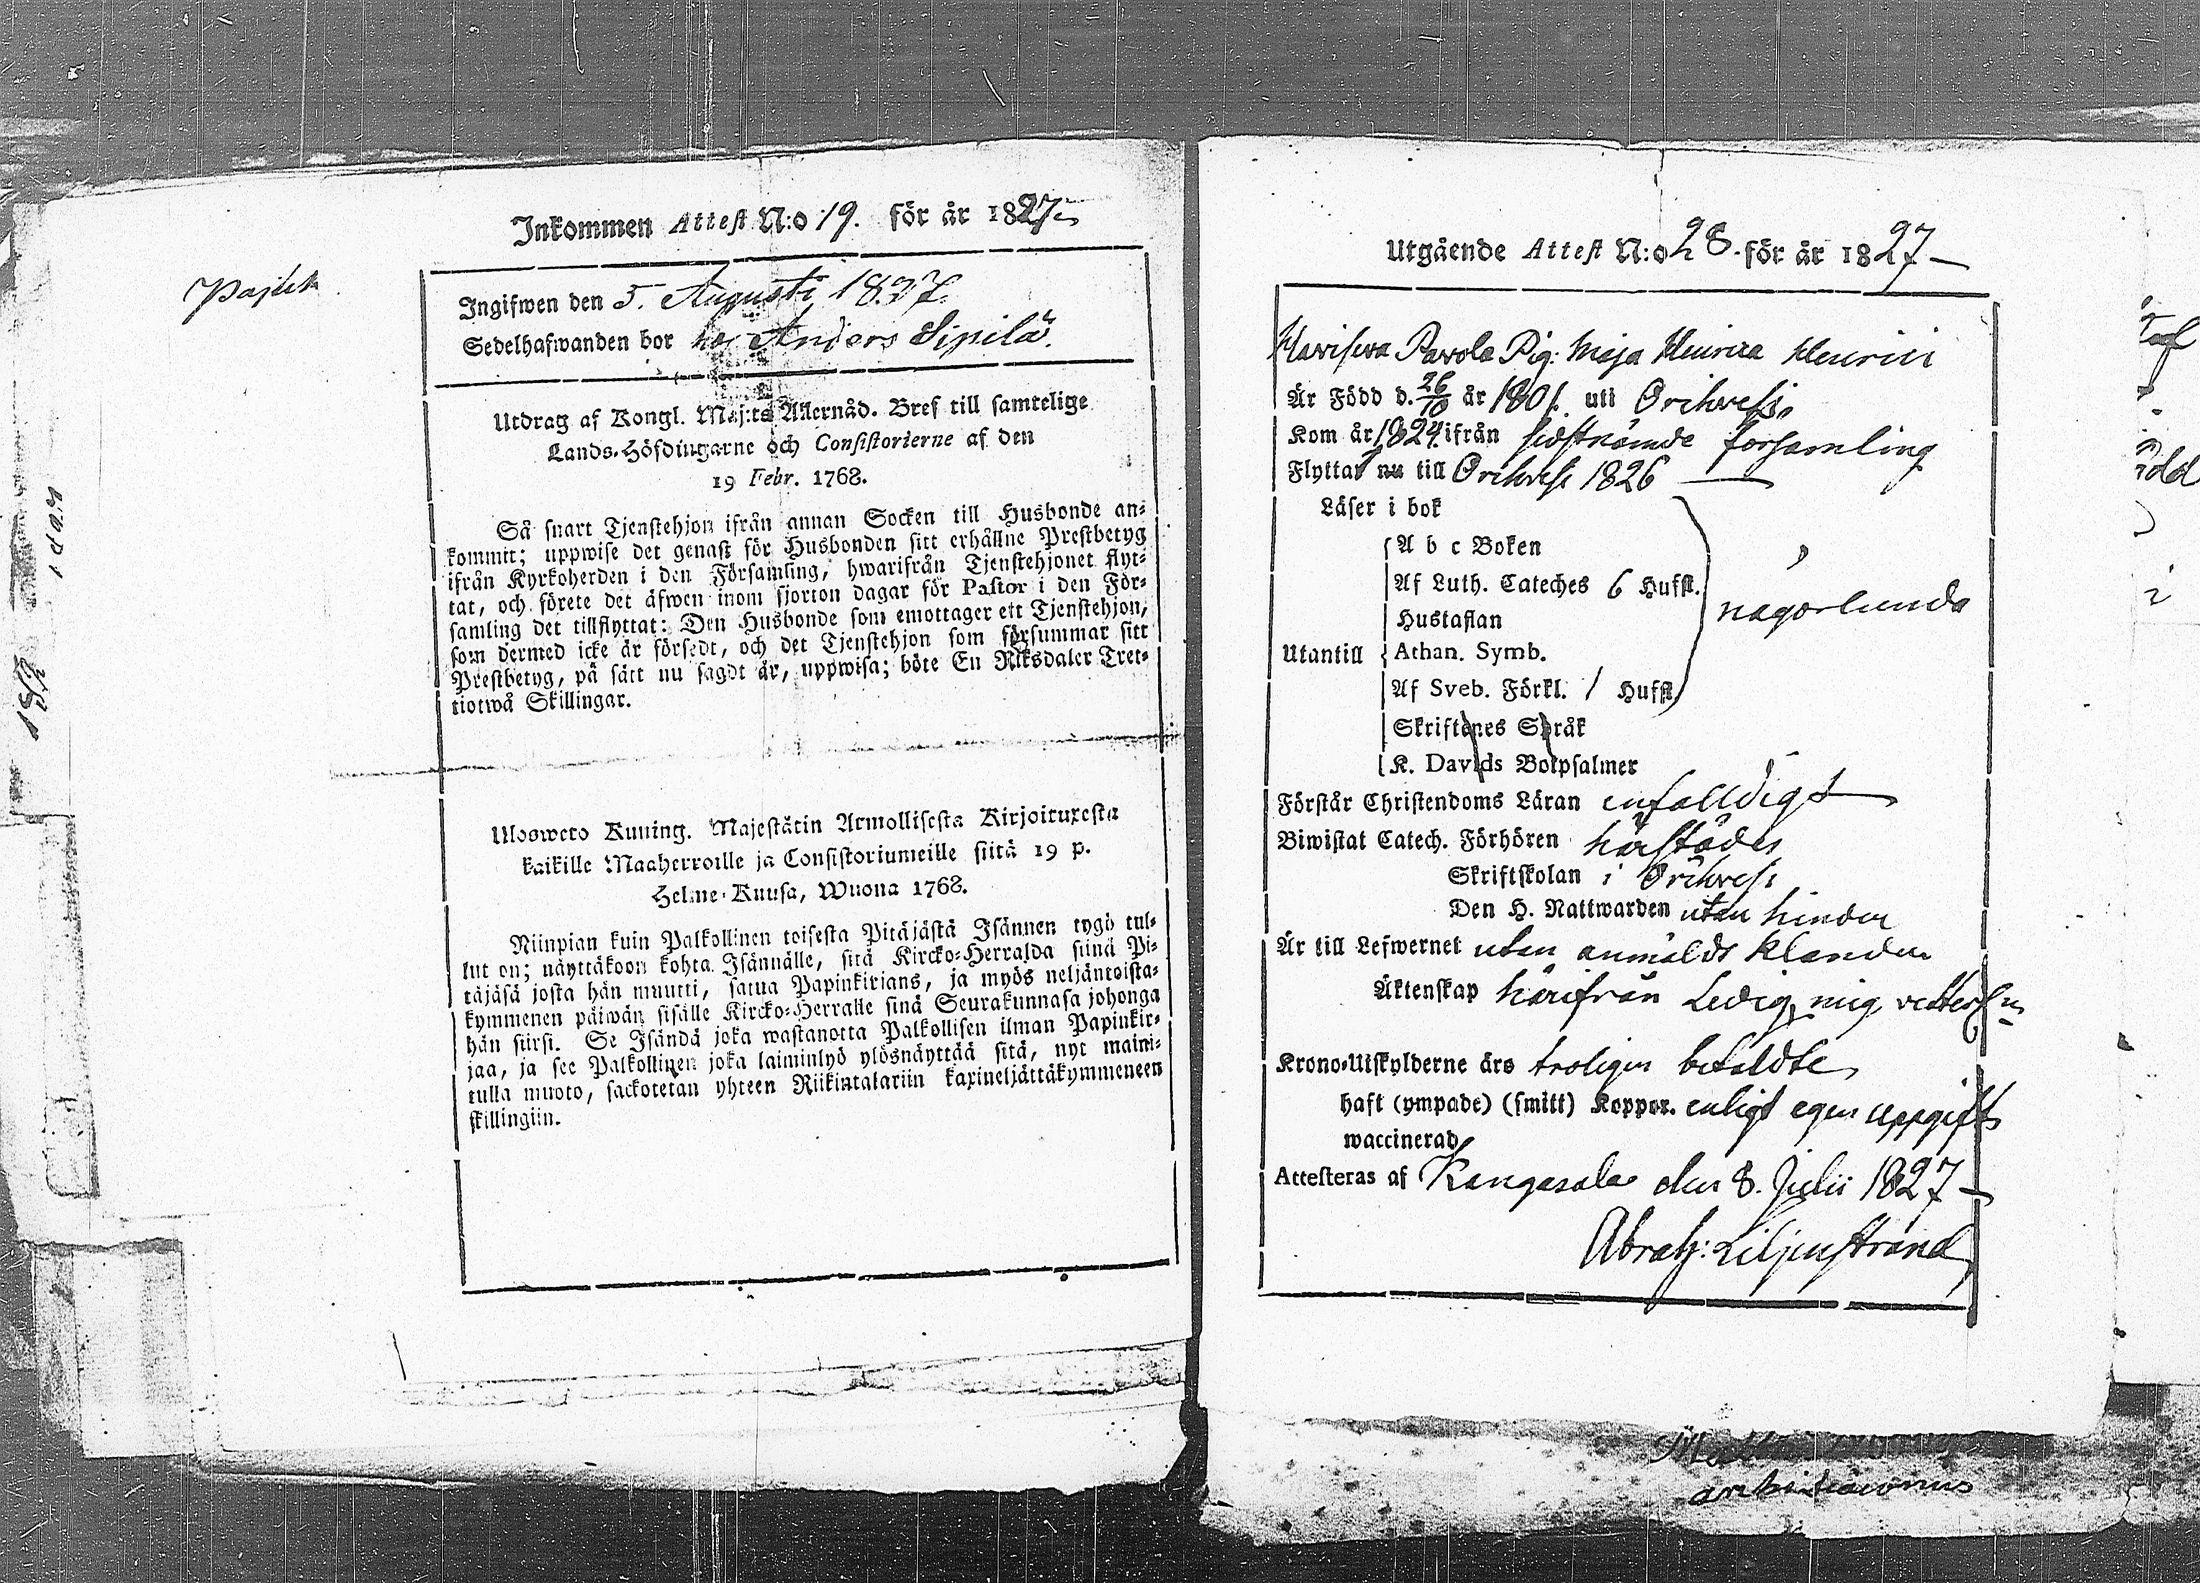 Paj
Inkommen Attest N:o 19. för år 1827.
Ingifwen den 5. Augusti 1827.
Sedelhafwanden bor hos Anders Sipilä.
Utdrag af Kongl. Maj:ts Allernåd. Bref till samtelige
Lands-Höfdingarne och Consistorierne af den
19 Febr. 1768.
Så snart Tjenstehjon ifrån annan Socken till Husbonde an-
kommit; uppwise det genast för Husbonden sitt erhållne Prestbetyg
ifrån Kyrkoherden i den Församling, hwarifrån Tjenstehjonet flyt-
tat, och förete det äfwen inom fjorton dagar för Pastor i den För-
samling det tillflyttat: Den Husbonde som emottager ett Tjenstehjon,
som dermed icke är försedt, och det Tjenstehjon som försummar sitt
Prestbetyg, på sätt nu sagdt är, uppwisa; böte En Riksdaler Tret-
tiotwå Skillingar.
Ulosweto Kuning. Majestätin Armollisesta Kirjoituxesta
kaikille Maaherroille ja Consistoriumeille siitä 19 p.
Helme-Kuusa, Wuona 1768.
Niinpian kuin Palkollinen toisesta Pitäjästä Isännen tygö tul-
lut on; näyttäkoon kohta Isännälle, sitä Kircko-Herralda siinä Pi-
täjäsä josta hän muutti, satua Papinkirjans, ja myös neljäntoista-
kymmenen päiwän sisälle Kircko-Herralle sinä Seurakunnasa johonga
hän siirsi. Se Isändä joka wastanotta Palkollisen ilman Papinkir-
jaa, ja see Palkollinen joka laiminlyö ylösnäyttää sitä, nyt maini-
tulla muoto, sackotetan yhteen Riikintalariin kaxineljättäkymmeneen
skillingiin.
Utgående Attest N:o 28. för år 1827
Hawisewa Pawola Pig: Maja Henrica Henrici
Är Född d. 26/10 år 1801. uti Orihwesi,
Kom år 1824. ifrån sidstnämde församling
Flyttat nu till Orihwesi 1826
Läser i bok
A b c Boken
Af Luth. Cateches 6 Hufst.
någorlunda
Hustaflan
Utantill Athan. Symb.
Af Sveb. Förkl. / Hufst.
Skriftenes Språk
K. Davids Botpsalmer
Förstår Christendoms Läran enfalldigt
Biwistat Catech. Förhören härstädes
Skriftskolan i Orihwesi
Den H. Nattwarden utan hinder
Är till Lefwernet utan anmäldt klander
Äktenskap härifrån Ledig, mig
Krono-Utskylderne äro troligen betaldte,
haft (ympade) (smitt) Koppor. enligt egen uppgift
waccinerad
Attesteras af Kangasala den 8. Julii 1827
Abrah: Liljenstrand